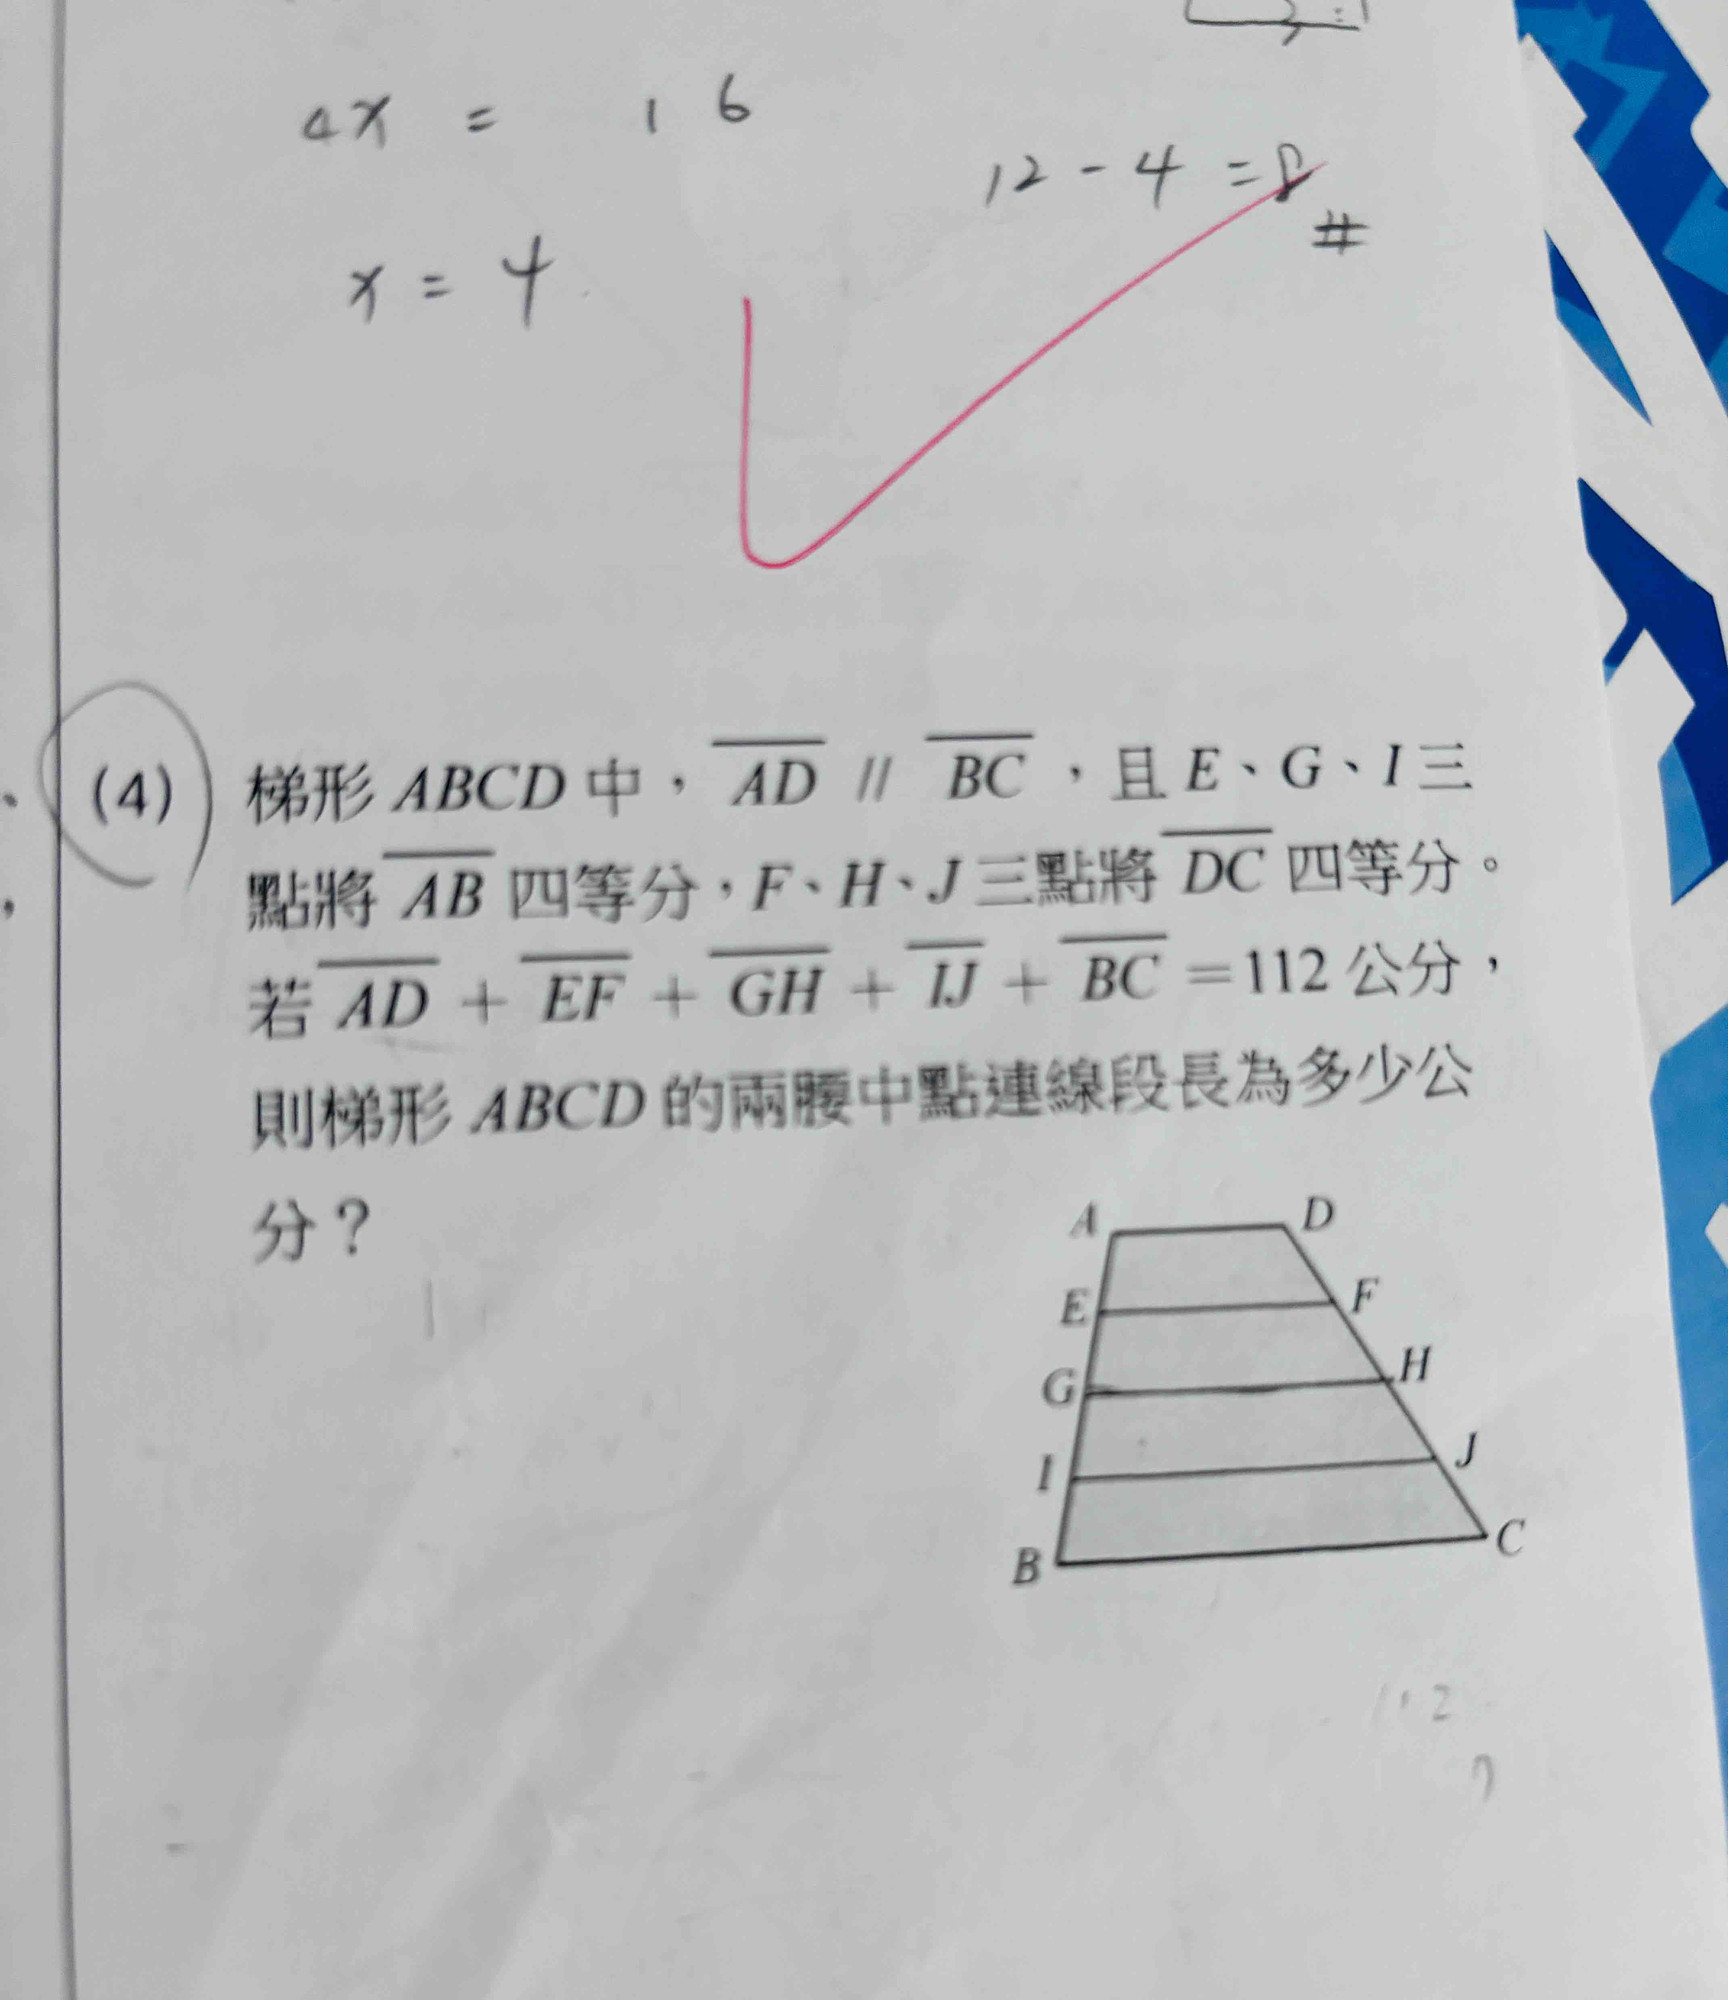 4x = 16
12 - 4 = 8
#
x = 4
(4) 梯形 ABCD 中，AD // BC，且 E、G、I 三
點將 AB 四等分，F、H、J 三點將 DC 四等分。
若 AD + EF + GH + IJ + BC =112 公分，
則梯形 ABCD 的兩腰中點連線段長為多少公
分？
A D
E F
G H
I J
B C
112